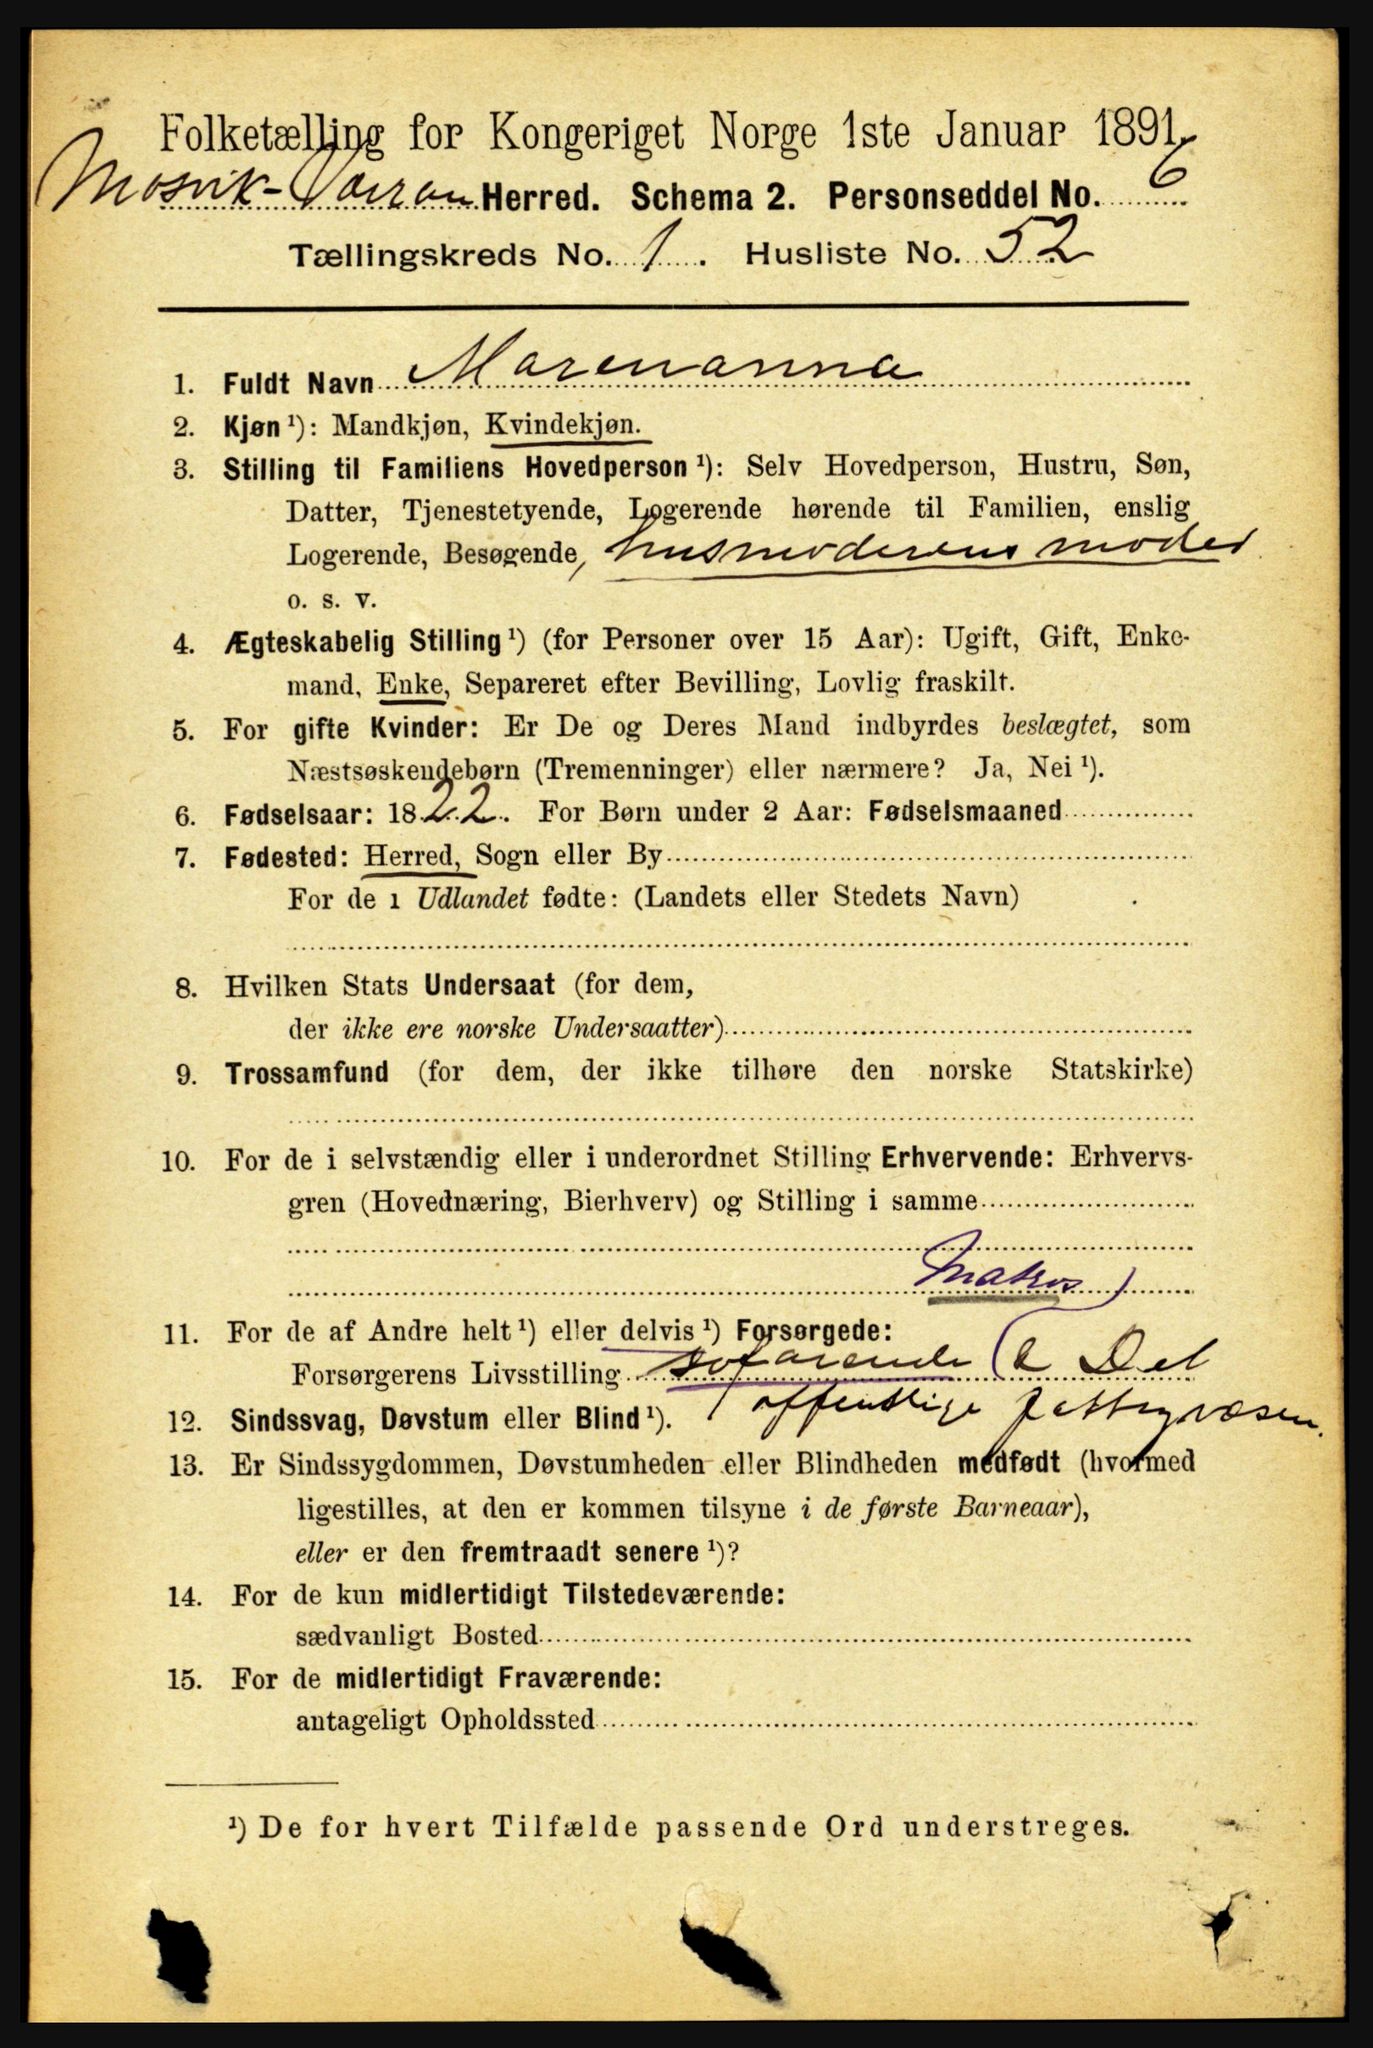 Folketælling for Kongeriget Norge 1ste Januar 1891.
Mosvik-Værran Herred. Schema 2. Personseddel No. 6
Tællingskreds No. 1. Husliste No. 52
1. Fuldt Navn Marenanna
2. Kjøn ¹): Mandkjøn, Kvindekjøn.
3. Stilling til Familiens Hovedperson ¹): Selv Hovedperson, Hustru, Søn,
Datter, Tjenestetyende, Logerende hørende til Familien, enslig
Logerende, Besøgende, husmoderens moder
o. s. v.
4. Ægteskabelig Stilling ¹) (for Personer over 15 Aar): Ugift, Gift, Enke-
mand, Enke, Separeret efter Bevilling, Lovlig fraskilt.
5. For gifte Kvinder: Er De og Deres Mand indbyrdes beslægtet, som
Næstsøskendebørn (Tremenninger) eller nærmere? Ja, Nei ¹).
6. Fødselsaar: 1822. For Børn under 2 Aar: Fødselsmaaned
7. Fødested: Herred, Sogn eller By
For de i Udlandet fødte: (Landets eller Stedets Navn)
8. Hvilken Stats Undersaat (for dem,
der ikke ere norske Undersaatter)
9. Trossamfund (for dem, der ikke tilhøre den norske Statskirke)
10. For de i selvstændig eller i underordnet Stilling Erhvervende: Erhvervs-
gren (Hovednæring, Bierhverv) og Stilling i samme
Matros)
11. For de af Andre helt ¹) eller delvis ¹) Forsørgede:
Forsørgerens Livsstilling søfarende ( Del
12. Sindssvag, Døvstum eller Blind ¹). offentlige fattigvæsen.
13. Er Sindssygdommen, Døvstumheden eller Blindheden medfødt (hvormed
ligestilles, at den er kommen tilsyne i de første Barneaar),
eller er den fremtraadt senere ¹)?
14. For de kun midlertidigt Tilstedeværende:
sædvanligt Bosted
15. For de midlertidigt Fraværende:
antageligt Opholdssted
¹) De for hvert Tilfælde passende Ord understreges.